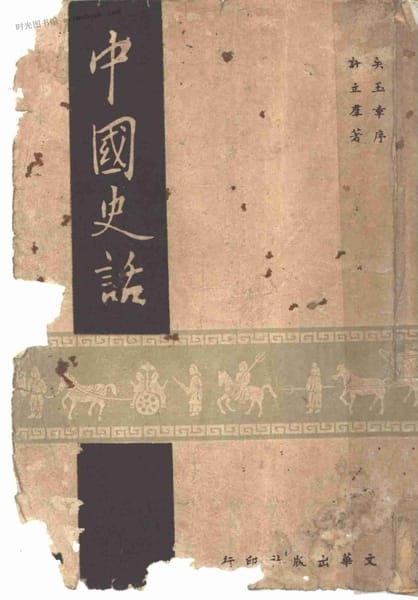 时光图书馆
吳玉章序
許立羣著
中國史話
文華出版社印行